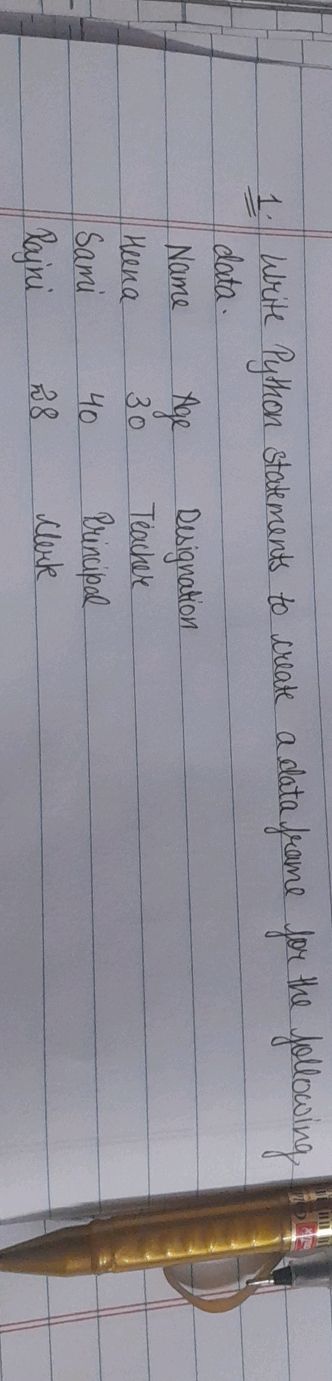 1. Write Python statements to create a data frame for the following
data.
Name Age Designation
Heena 30 Teacher
Sami 40 Principal
Rajni 28 Clerk